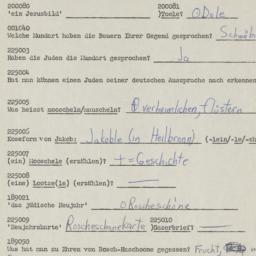 200080 200081
'ein Jerusbild' )Toole( O Dole
001040
Welche Mundart haben die Bauern Ihrer Gegend gesprochen? Schwäb
225003
Haben die Juden die Mundart gesprochen? Ja
225004
Hat man können einen Juden seiner deutschen Aussprache nach erkennen
225005
Was heisst verheimlichen, flüstern
225006
Koseform von Jakob: Jakoble (in Heilbronn) (-lein/-le/-ch
225007
(ein) Mooschele (erzählen)? + = Geschichte
225008
(eine) Lootze(ls) (erzählen)? —
189021
'das jüdische Neujahr' O Roscheschöne
225009 225010
'Neujahrskarte' Roscheschonekarte )Kaserbrief( —
189050
Was hat man zu Ehren von Rosch-Haschoone gegessen? Frucht,